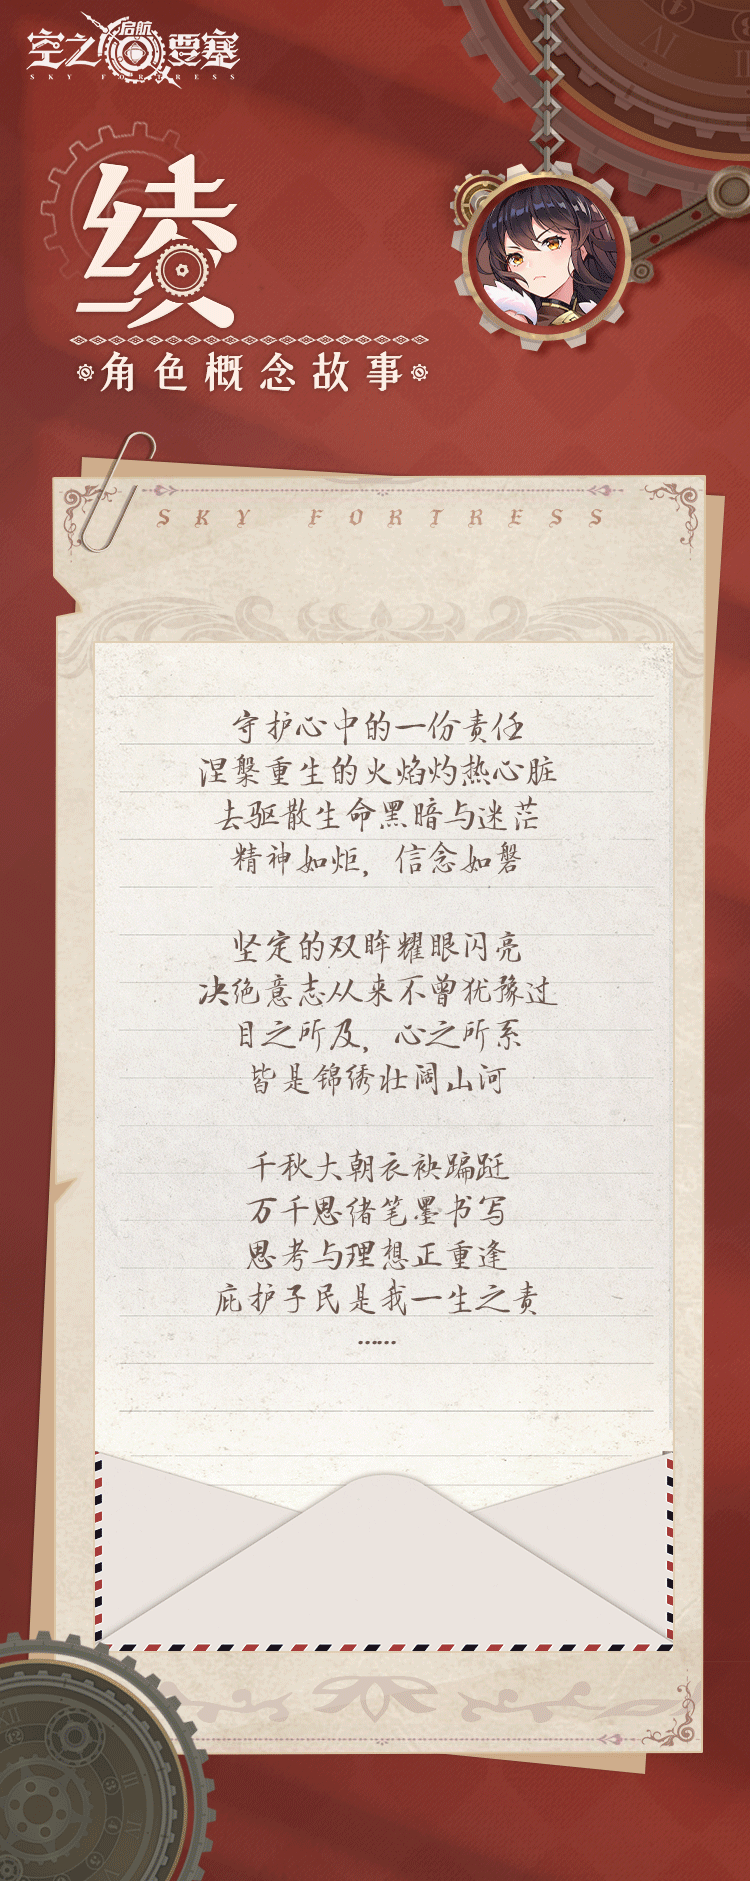 空之要塞
启航
SKY FORTRESS
绫
角色概念故事
SKY FORTRESS
守护心中的一份责任
涅槃重生的火焰灼热心脏
去驱散生命黑暗与迷茫
精神如炬，信念如磐
坚定的双眸耀眼闪亮
决绝意志从来不曾犹豫过
目之所及，心之所系
皆是锦绣壮阔山河
千秋大朝衣袂蹁跹
万千思绪笔墨书写
思考与理想正重逢
庇护子民是我一生之责
……